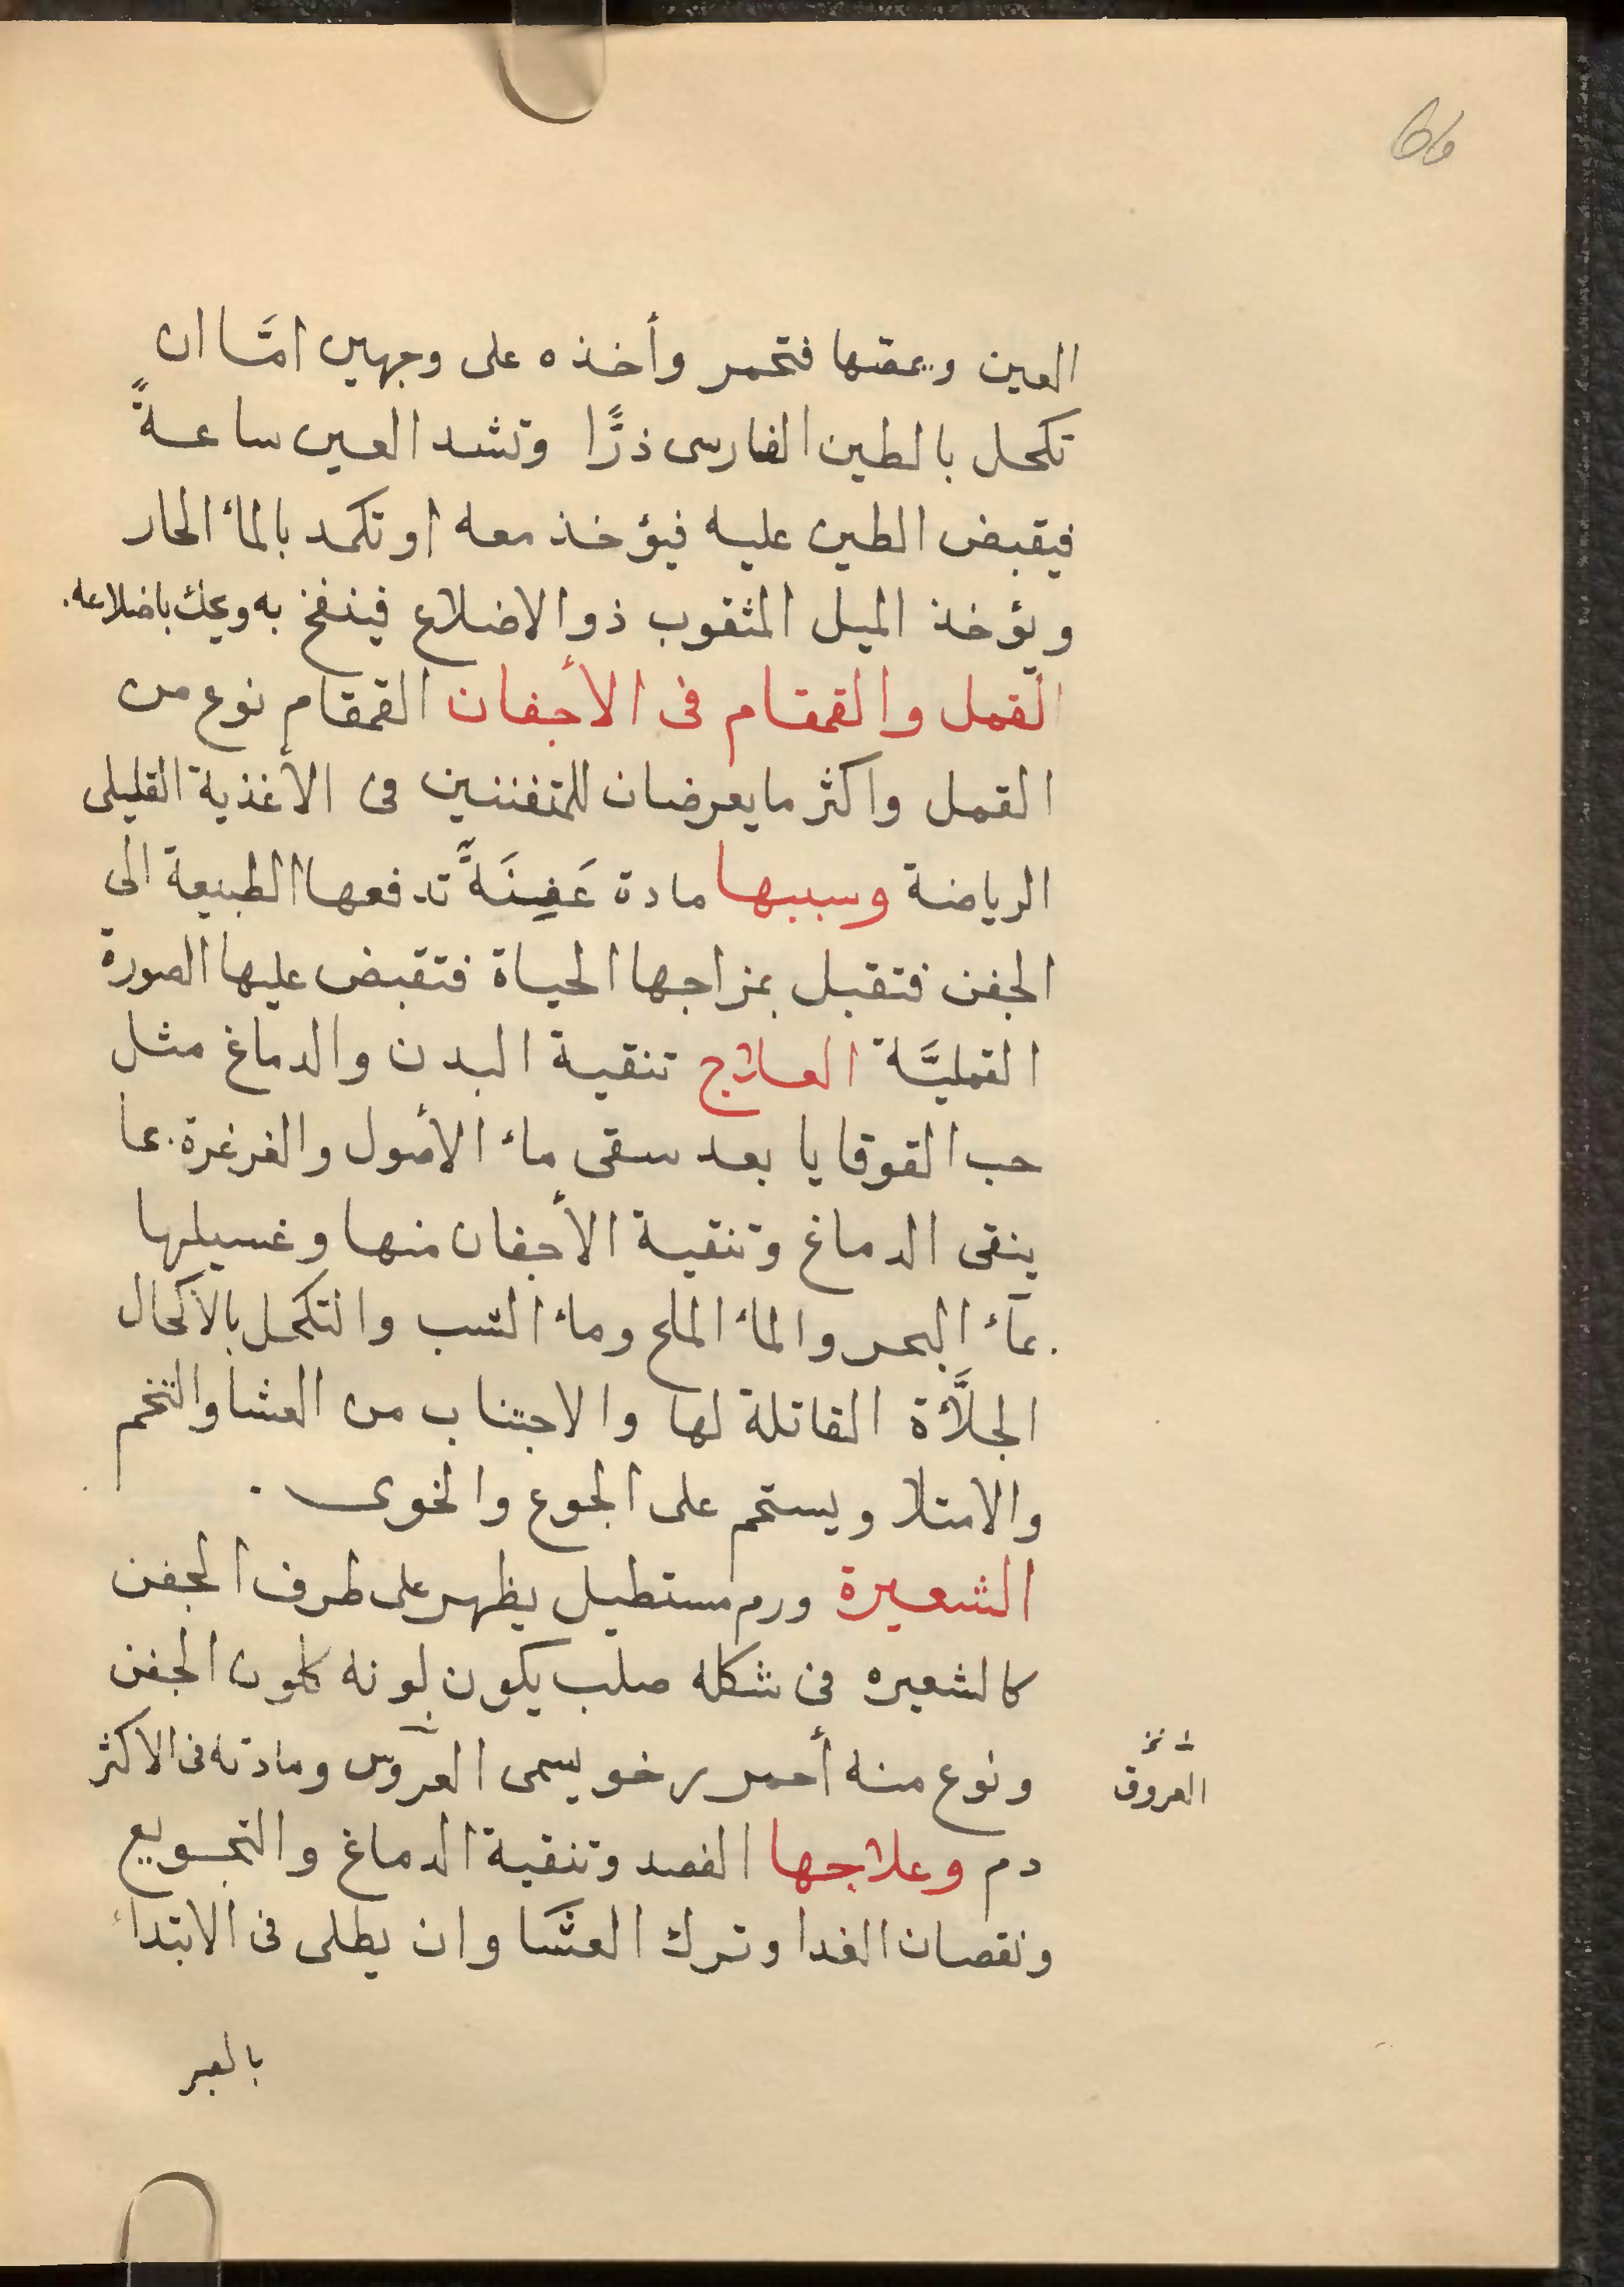 العين ويمصها فتحمر وأخذه على وجهين امَّا ان
تكحل بالطين الفارسى ذرًّا وتشد العين ساعةً
فيقبض الطين عليه فيؤخذ معه او تكمد بالمأ الحار
ويؤخذ الميل المثقوب ذو الاضلاع فينفخ به ويحك باضلاعه.
القمل والقمقام فى الأجفان القمقام نوع من
القمل واكثر مايعرضان للمتفننين فى الأغذية القليلى
الرياضة وسببها مادة عَفِنَةً تدفعها الطبيعة الى
الجفن فتقبل بمزاجها الحياة فتقبض عليها الصورة
القمليَّة العلاج تنقية البدن والدماغ مثل
حب القوقايا بعد سقى مأ الأصول والغرغرة بما
ينقى الدماغ وتنقية الأجفان منها وغسيلها
بمأ البحر والمأ الملح ومأ الشب والتكحل بالأكحال
الجلَّأة القاتلة لها والاجتناب من العشا والتخم
والامتلا ويستحم على الجوع والخوى.
الشعيرة ورم مستطيل يظهر على طرف الجفن
كالشعيره فى شكله صلب يكون لونه كلون الجفن
ونوع منه أحمر رخو يسمى العروس ومادته فى الاكثر
العروق
دم وعلاجها الفصد وتنقية الدماغ والتجويع
ونقصان الغدا وترك العشا وان يطلى فى الابتدأ
بالصبر